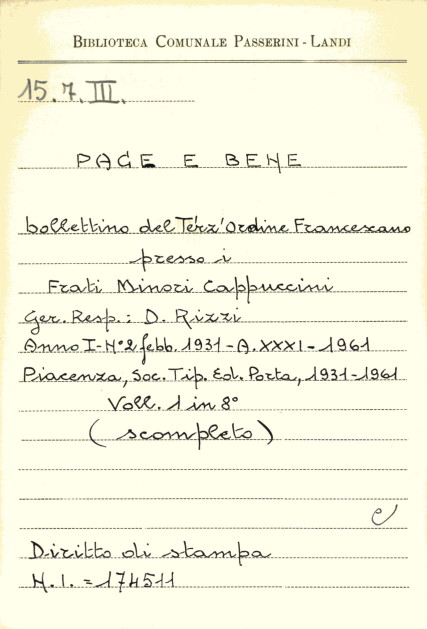 BIBLIOTECA COMUNALE PASSERINI - LANDI
15.7.III.
PACE E BENE
bollettino del Terz'Ordine Francescano
presso i
Frati Minori Cappuccini
Ger. Resp.: D. Rizzi
Anno I - N° 2 febb. 1931 - A. XXXI - 1961
Piacenza, Soc. Tip. Ed. Porta, 1931-1961
Voll. 1 in 8°
( scompleto )
e
Diritto di stampa
N. I. = 174511